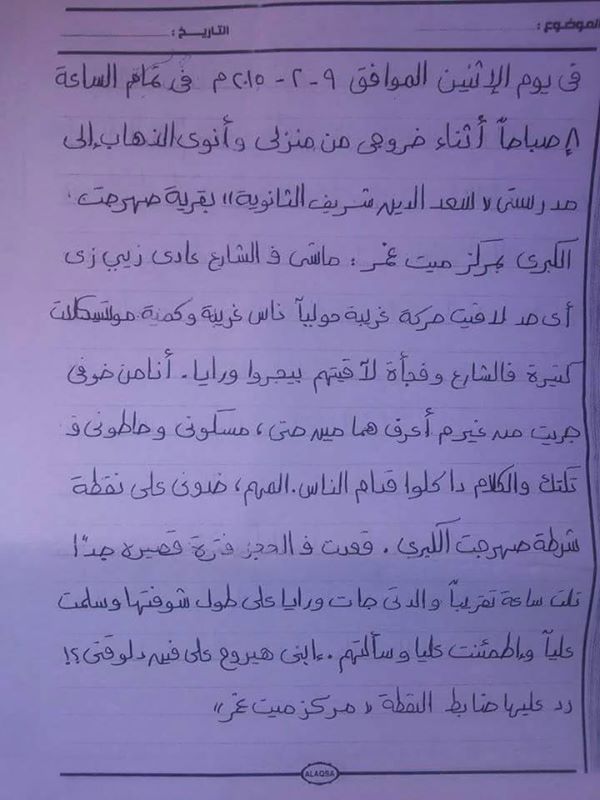 الموضوع :
التاريخ :
فى يوم الإثنين الموافق ٩-٢-٢٠١٥م فى تمام الساعة
٨ صباحاً أثناء خروجى من منزلى وأنوى الذهاب إلى
مدرستى «سعد الدين شريف الثانوية» بقرية صهرجت
الكبرى بمركز ميت غمر : ماشى فـ الشارع عادى زيي زى
أى حد لاقيت حركة غريبة حوليآ ناس غريبة وكمية موتسيكلات
كتيرة فالشارع وفجأة لآقيتهم بيجروا ورايا . أنا من خوفى
جريت من غير م أعرف هما مين حتى ، مسكونى وحاطونى فـ
تكتك والكلام دا كلوا قدام الناس . المهم ، خدونى على نقطة
شرطة صهرجت الكبرى . قعدت فـ الحجز فترة قصيرة جدًا
تلت ساعة تقريباً والدتى جات ورايا على طول شوفتها وسلمت
عليآ واطمئنت عليا وسألتهم . ءابنى هيروح على فين دلوقتى ؟!
رد عليها ضابط النقطة «مركز ميت غمر»
ALAQSA